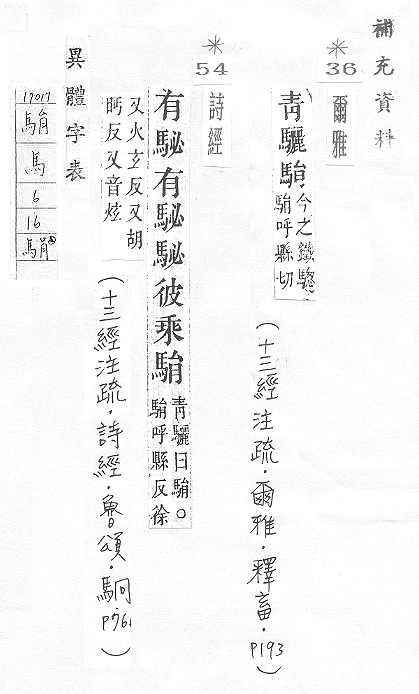 補充資料
＊36
爾雅
青驪駽
今之鐵驄
駽呼縣切
（十三經注疏．爾雅．釋畜．P193）
＊54
詩經
有駜有駜駜彼乘駽
青驪曰駽。
駽呼縣反徐
又火玄反又胡
眄反又音炫
（十三經注疏．詩經．魯頌．駉．P761）
異體字表
17017
駽
馬
6
16